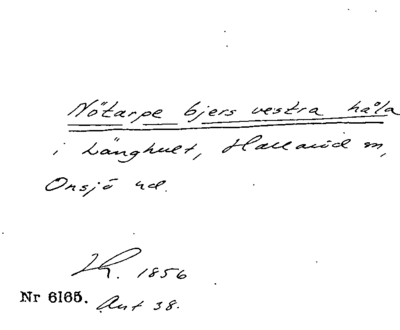 Nötarpe bjers vestra håla
i Länghult, Hallaröd sn,
Onsjö hd.
Lk. 1856
Nr 6165. Akt 38.